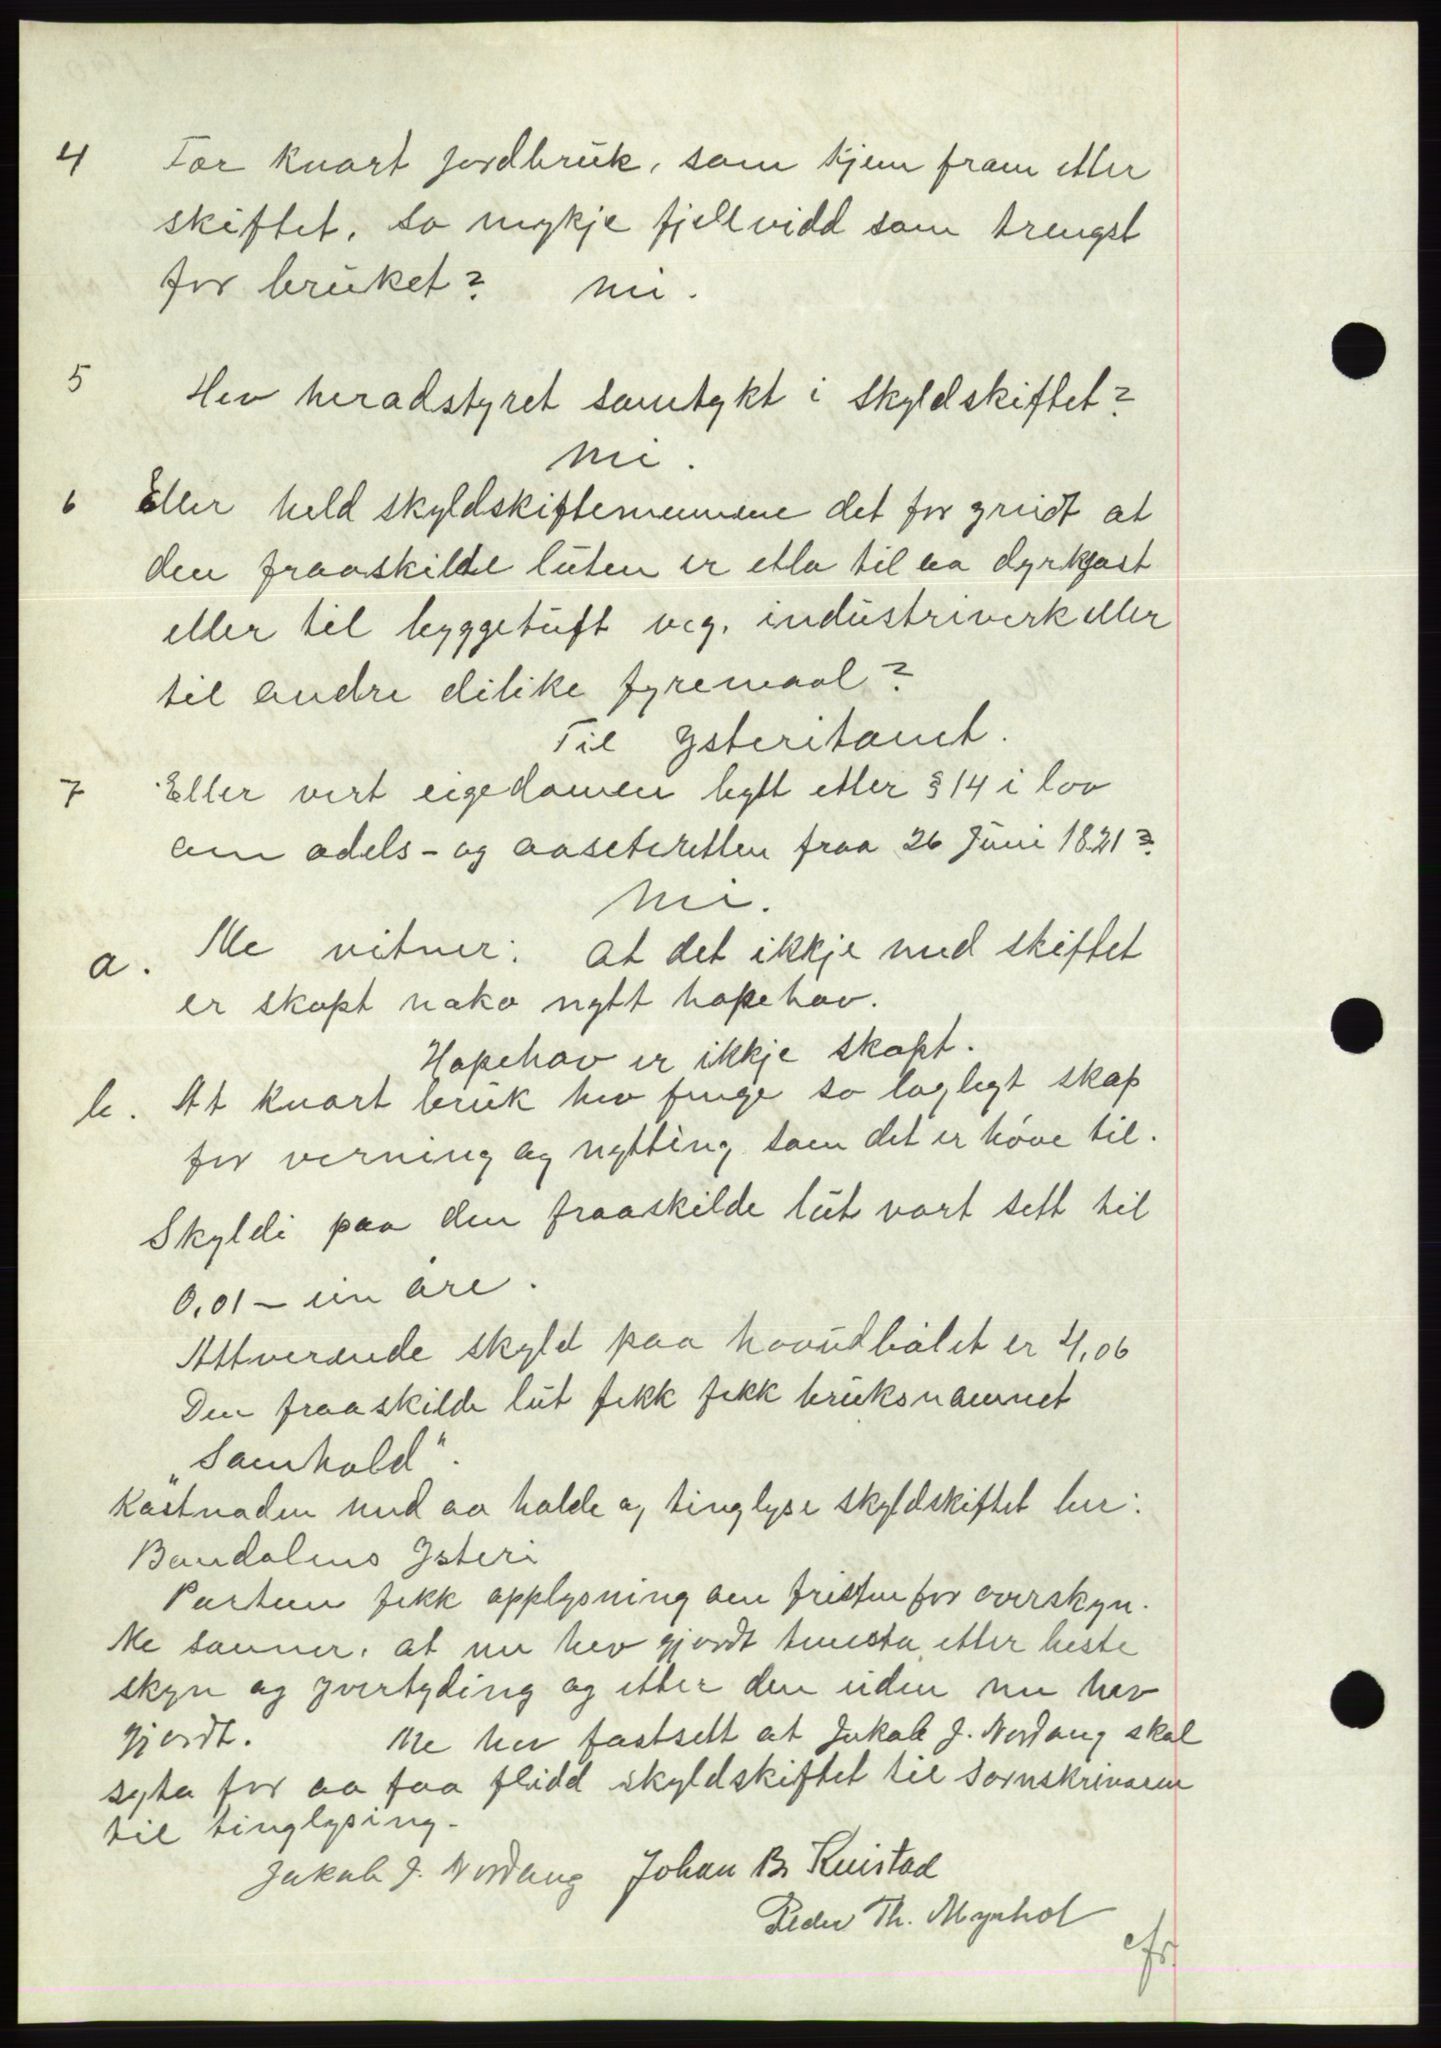 4 Fær kvart jordbruk, som kjem fram etter
skiftet, so mykje fjellvidd som trengst
for bruket? nei.
5 Hev heradstyret samtykt i skyldskiftet?
nei.
6 Eller held skyldskiftemennene det for greidt at
den fraaskilde luten er etla til aa dyrkjast
eller til byggetuft veg, industriverk eller
til andre dilike fyremaal?
Til Ysteritomt.
7 Eller vert eigedomen bytt etter § 14 i lov
om odels- og aaseteretten fraa 26 Juni 1821?
nei.
a. Me vitner: at det ikkje med skiftet
er skapt noko nytt hopehav.
Hopehav er ikkje skapt.
b. At kvart bruk hev fenge so laglegt skap
for verning og nytting som det er høve til.
Skyldi paa den fraaskilde lut vart sett til
0,01 – ein øre.
Attverande skyld paa hovudbølet er 4,06
Den fraaskilde lut fekk fekk bruksnamnet
„Samhold".
Kostnaden med aa halde og tinglyse skyldskiftet ber:
Bondalens Ysteri
Partene fekk opplysning om fristen for overskyn.
Me sanner, at me hev gjordt tenesta etter beste
skyn og yvertyding og etter den eiden me hev
gjordt. Me hev fastsett at Jakob J. Nordang skal
syta for aa faa flidd skyldskiftet til Sornskrivaren
til tinglysing.
Jakob J. Nordang Johan B. Kvistad
Peder Th. Myrhol